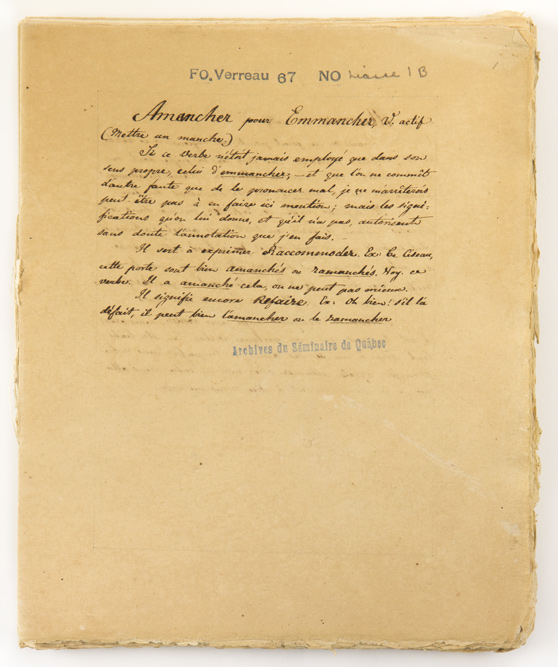 FO. Verreau 67 NO Liasse 1 B
Amancher pour Emmancher, V. actif
(Mettre un manche.)
Si ce verbe n'était jamais employé que dans son
sens propre, celui d'emmancher; – et que l'on ne commît
d'autre faute que de le prononcer mal, je ne m'arrêterais
peut être pas à en faire ici mention; mais les signi-
fications qu'on lui donne, et qu'il n'a pas, autorisent
sans doute l'annotation que j'en fais.
Il sert à exprimer Raccommoder. Ex: Ce Ciseau,
cette porte sont bien amanchés ou ramanchés. Voy. ce
verbe. Il a amanché cela, on ne peut pas mieux.
Il signifie encore Refaire. Ex: Oh bien! s'il la
défait, il peut bien l'amancher ou la ramancher
Archives du Séminaire de Québec